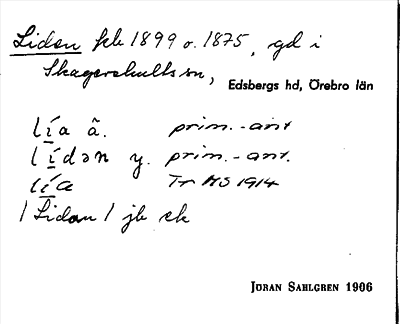 Lidan fkb 1899 o. 1875, gd i
Skagershults sn,
Edsbergs hd, Örebro län
lía ä. prim.-ant
lídən y. prim.-ant.
lía Tr MS 1914
/ Lidan / jb ek
JÖRAN SAHLGREN 1906